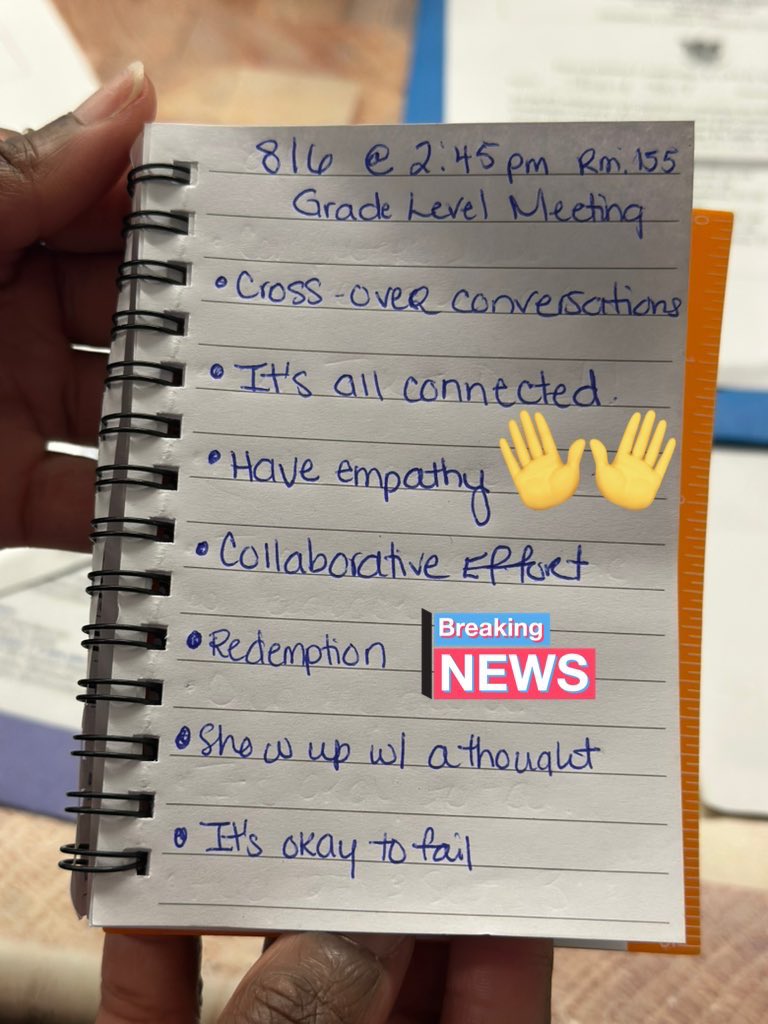 8/6 @ 2:45 pm Rm. 155
Grade Level Meeting
• Cross-over conversations
• It's all connected.
• Have empathy
• Collaborative Effort
• Redemption
Breaking
NEWS
• Show up w/ a thought
• It's okay to fail